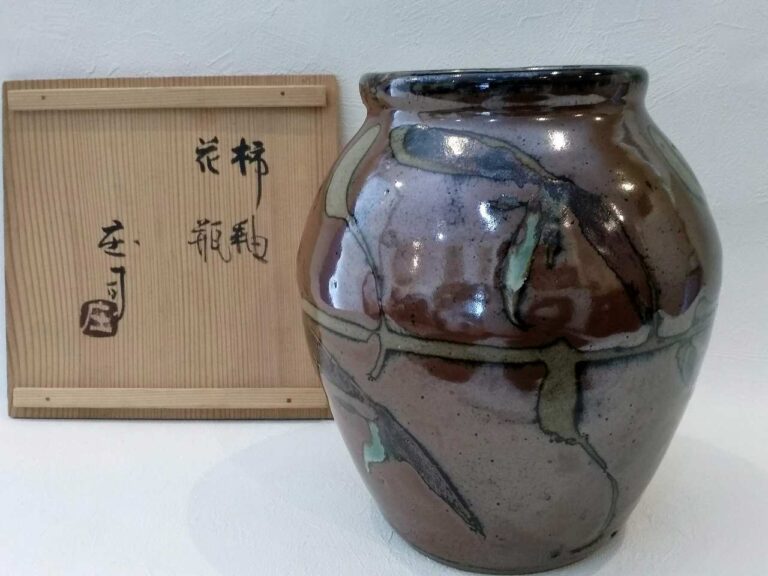 柿釉
花瓶
庄司
庄